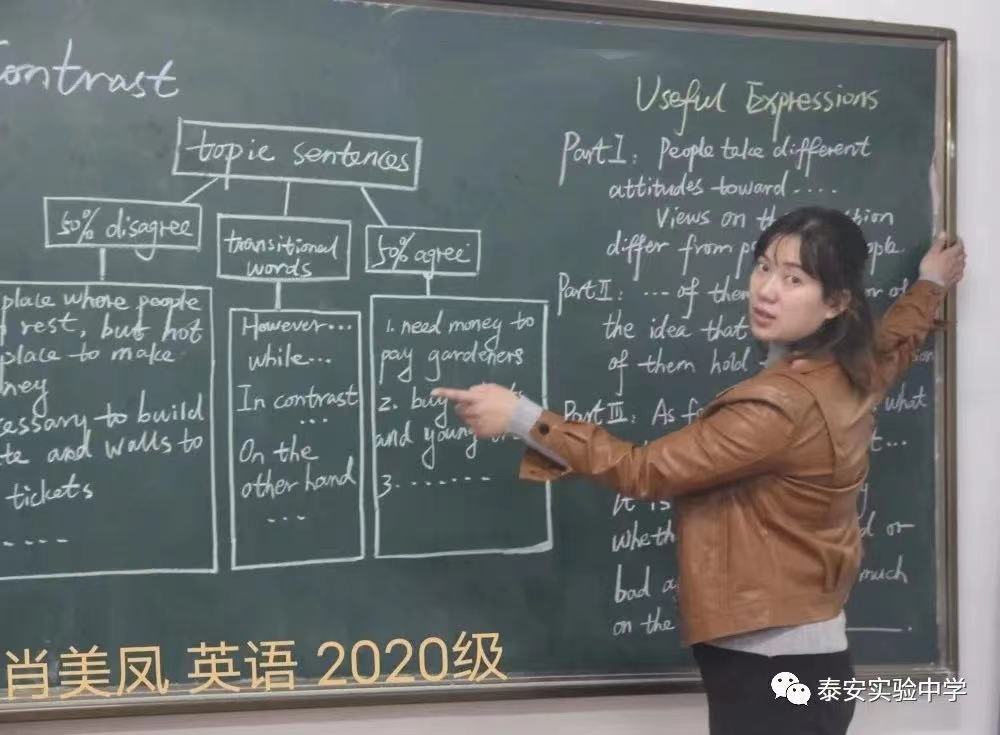 Contrast
topic sentences
50% disagree
transitional
words
50% agree
place where people
rest, but not
place to make
to build
and walls to
tickets
....
However...
while...
In contrast
...
On the
other hand
...
1. need money to
pay gardeners
2. buy
and young
3. .......
Useful Expressions
Part I: People take different
attitudes toward ....
Views on
differ from
Part II: ... of
the idea that
of them hold
Part III: As what
...
It is
or
bad much
on the ______.
肖美凤 英语 2020级
泰安实验中学